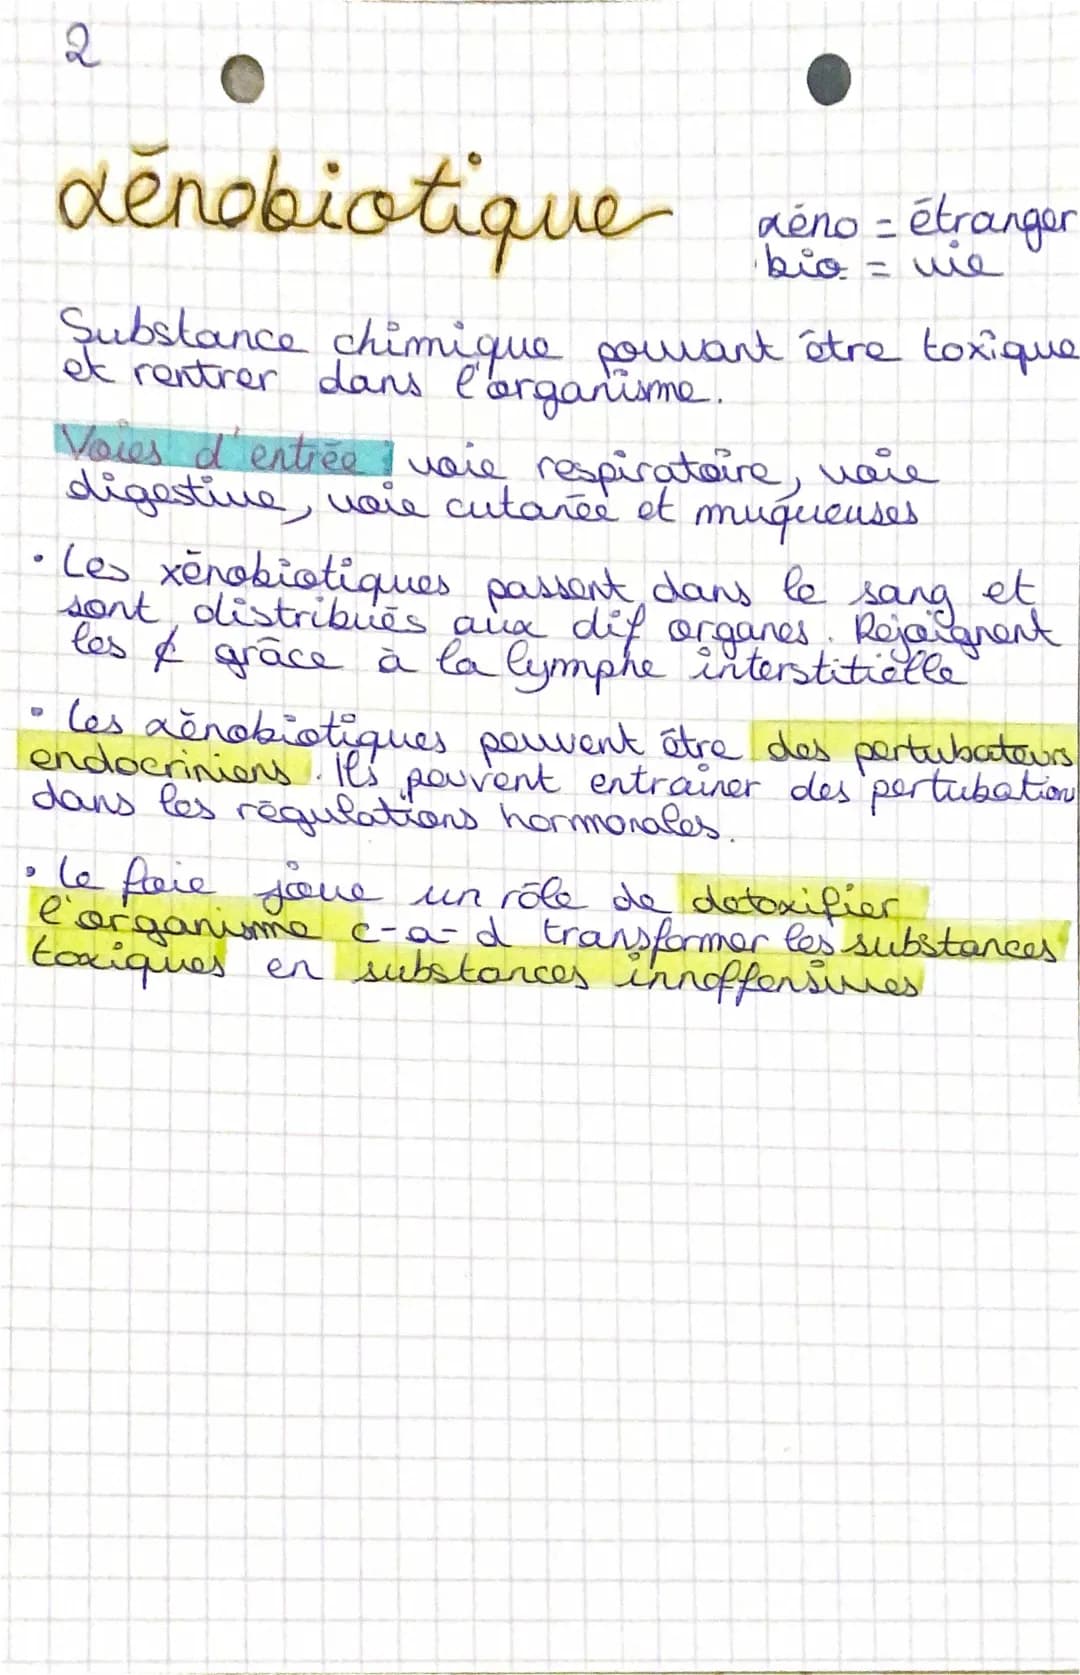 2
xénobiotique
xéno = étranger
bio = vie
Substance chimique pouvant être toxique
et rentrer dans l'organisme.
Voies d'entrée : voie respiratoire, voie
digestive, voie cutanée et muqueuses
• Les xénobiotiques passent dans le sang et
sont distribués aux dif organes. Rejoignent
les ¢ grâce à la lymphe interstitielle
• Les xénobiotiques peuvent être des pertubateurs
endocriniens. Ils peuvent entrainer des pertubation
dans les régulations hormonales.
• Le foie joue un rôle de detoxifier
l'organisme c-a-d transformer les substances
toxiques en substances innoffensives